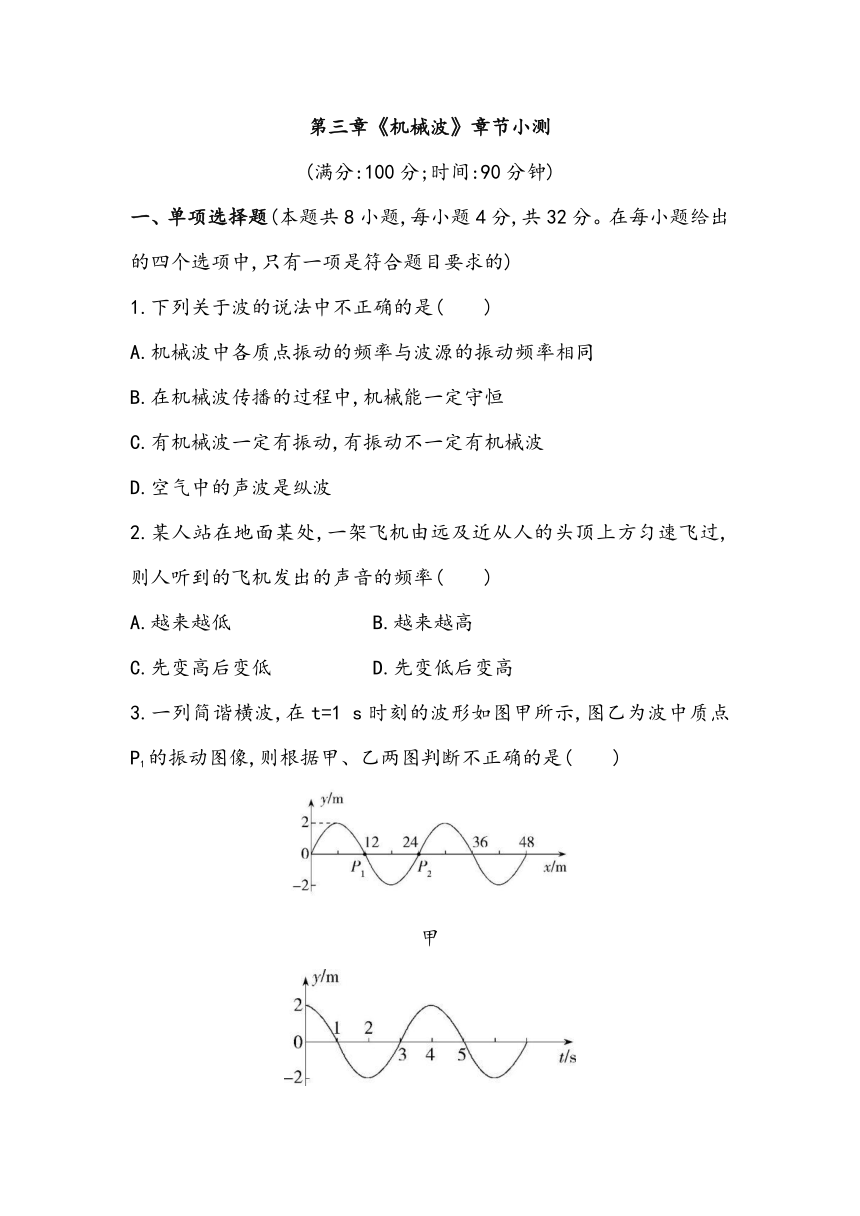 第三章《机械波》章节小测
(满分:100分;时间:90分钟)
一、单项选择题(本题共8小题,每小题4分,共32分。在每小题给出
的四个选项中,只有一项是符合题目要求的)
1.下列关于波的说法中不正确的是(　　)
A.机械波中各质点振动的频率与波源的振动频率相同
B.在机械波传播的过程中,机械能一定守恒
C.有机械波一定有振动,有振动不一定有机械波
D.空气中的声波是纵波
2.某人站在地面某处,一架飞机由远及近从人的头顶上方匀速飞过,
则人听到的飞机发出的声音的频率(　　)
A.越来越低　　B.越来越高
C.先变高后变低　　D.先变低后变高
3.一列简谐横波,在t=1 s时刻的波形如图甲所示,图乙为波中质点
P₁的振动图像,则根据甲、乙两图判断不正确的是(　　)
y/m
2
12 24 36 48
0
P₁ P₂ x/m
-2
甲
y/m
2
1 2
0
3 4 5 t/s
-2